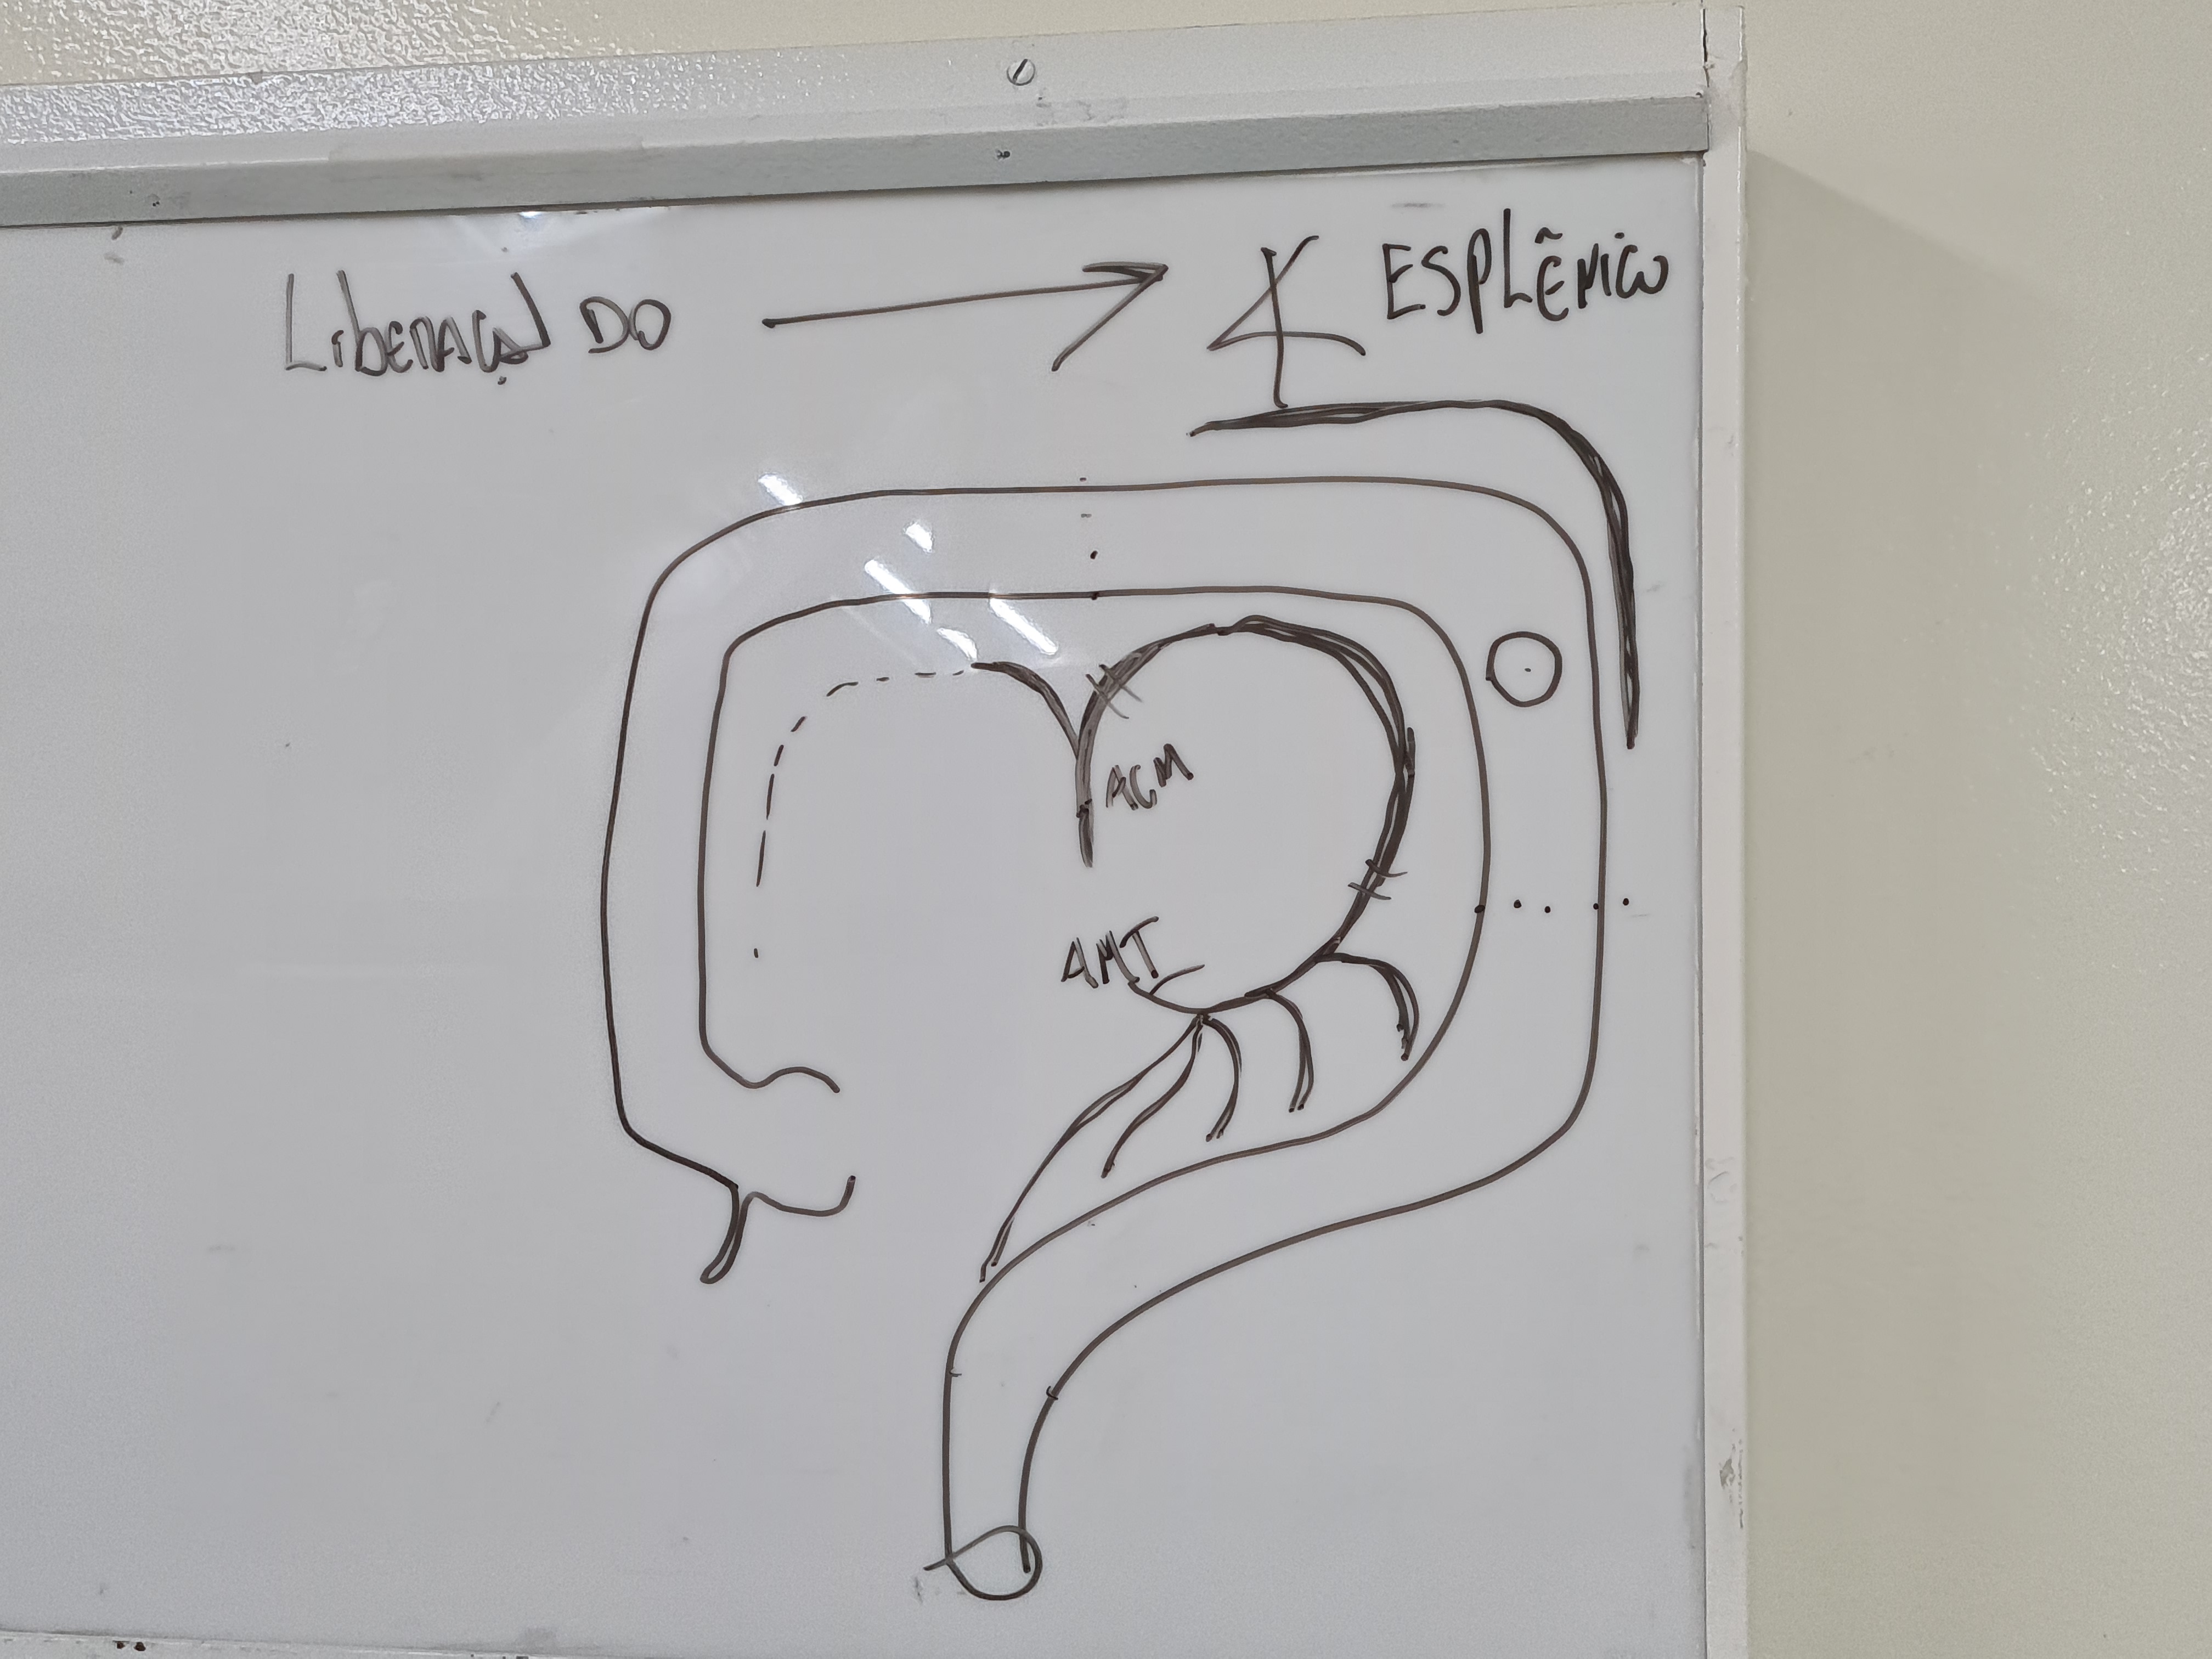 Liberação do → ∡ ESPLÊNICO
ACM
AMI